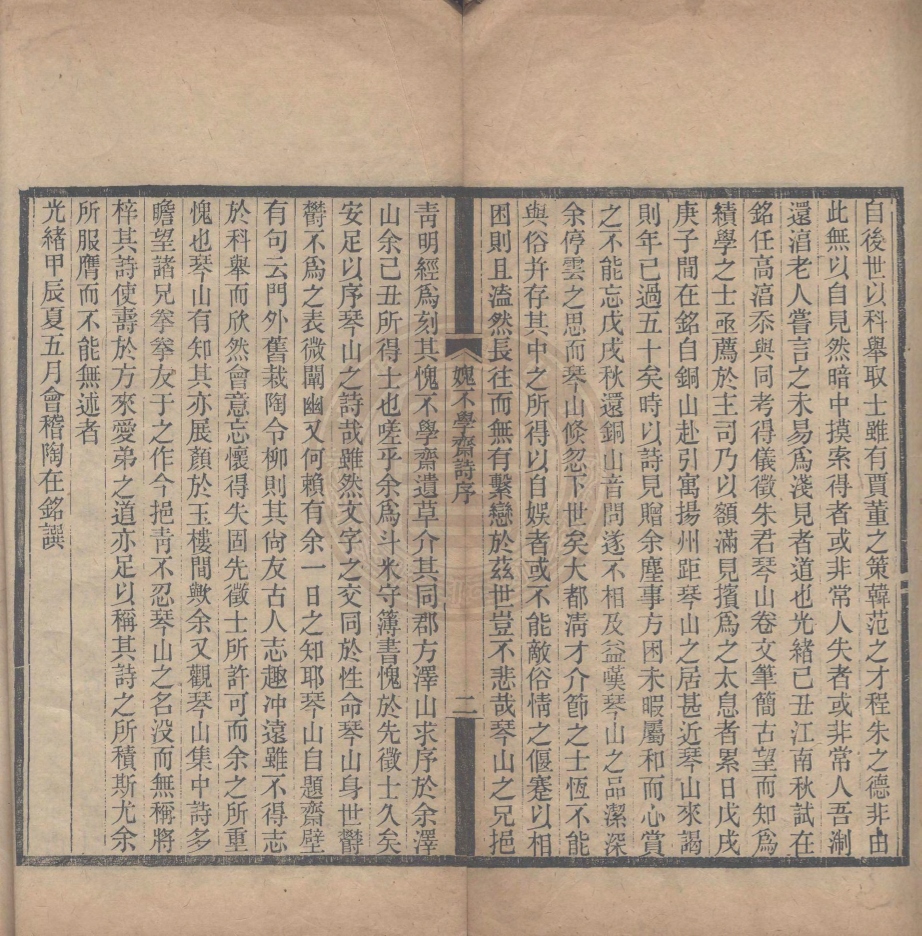 自後世以科舉取士雖有賈董之策韓范之才程朱之德非由
此無以自見然暗中摸索得者或非常人失者或非常人吾淛
還㵎老人嘗言之未易爲淺見者道也光緒己丑江南秋試在
銘任高㵎忝與同考得儀徵朱君琴山卷文筆簡古望而知爲
績學之士亟薦於主司乃以額滿見擯爲之太息者累日戊戌
庚子間在銘自銅山赴引寓揚州距琴山之居甚近琴山來謁
則年已過五十矣時以詩見贈余塵事方困未暇屬和而心賞
之不能忘戊戌秋還銅山音問遂不相及益嘆琴山之品潔深
余停雲之思而琴山倏忽下世矣大都淸才介節之士恆不能
與俗并存其中之所得以自娛者或不能敵俗情之偃蹇以相
困則且溘然長往而無有繫戀於茲世豈不悲哉琴山之兄挹
媿不學齋詩序
二
靑明經爲刻其愧不學齋遺草介其同郡方澤山求序於余澤
山余己丑所得士也嗟乎余爲斗米守簿書愧於先徵士久矣
安足以序琴山之詩哉雖然文字之交同於性命琴山身世鬱
鬱不爲之表微闡幽又何賴有余一日之知耶琴山自題齋壁
有句云門外舊栽陶令柳則其尙友古人志趣冲遠雖不得志
於科舉而欣然會意忘懷得失固先徵士所許可而余之所重
愧也琴山有知其亦展顏於玉樓間歟余又觀琴山集中詩多
瞻望諸兄拳拳友于之作今挹靑不忍琴山之名没而無稱將
梓其詩使壽於方來愛弟之道亦足以稱其詩之所積斯尤余
所服膺而不能無述者
光緒甲辰夏五月會稽陶在銘譔